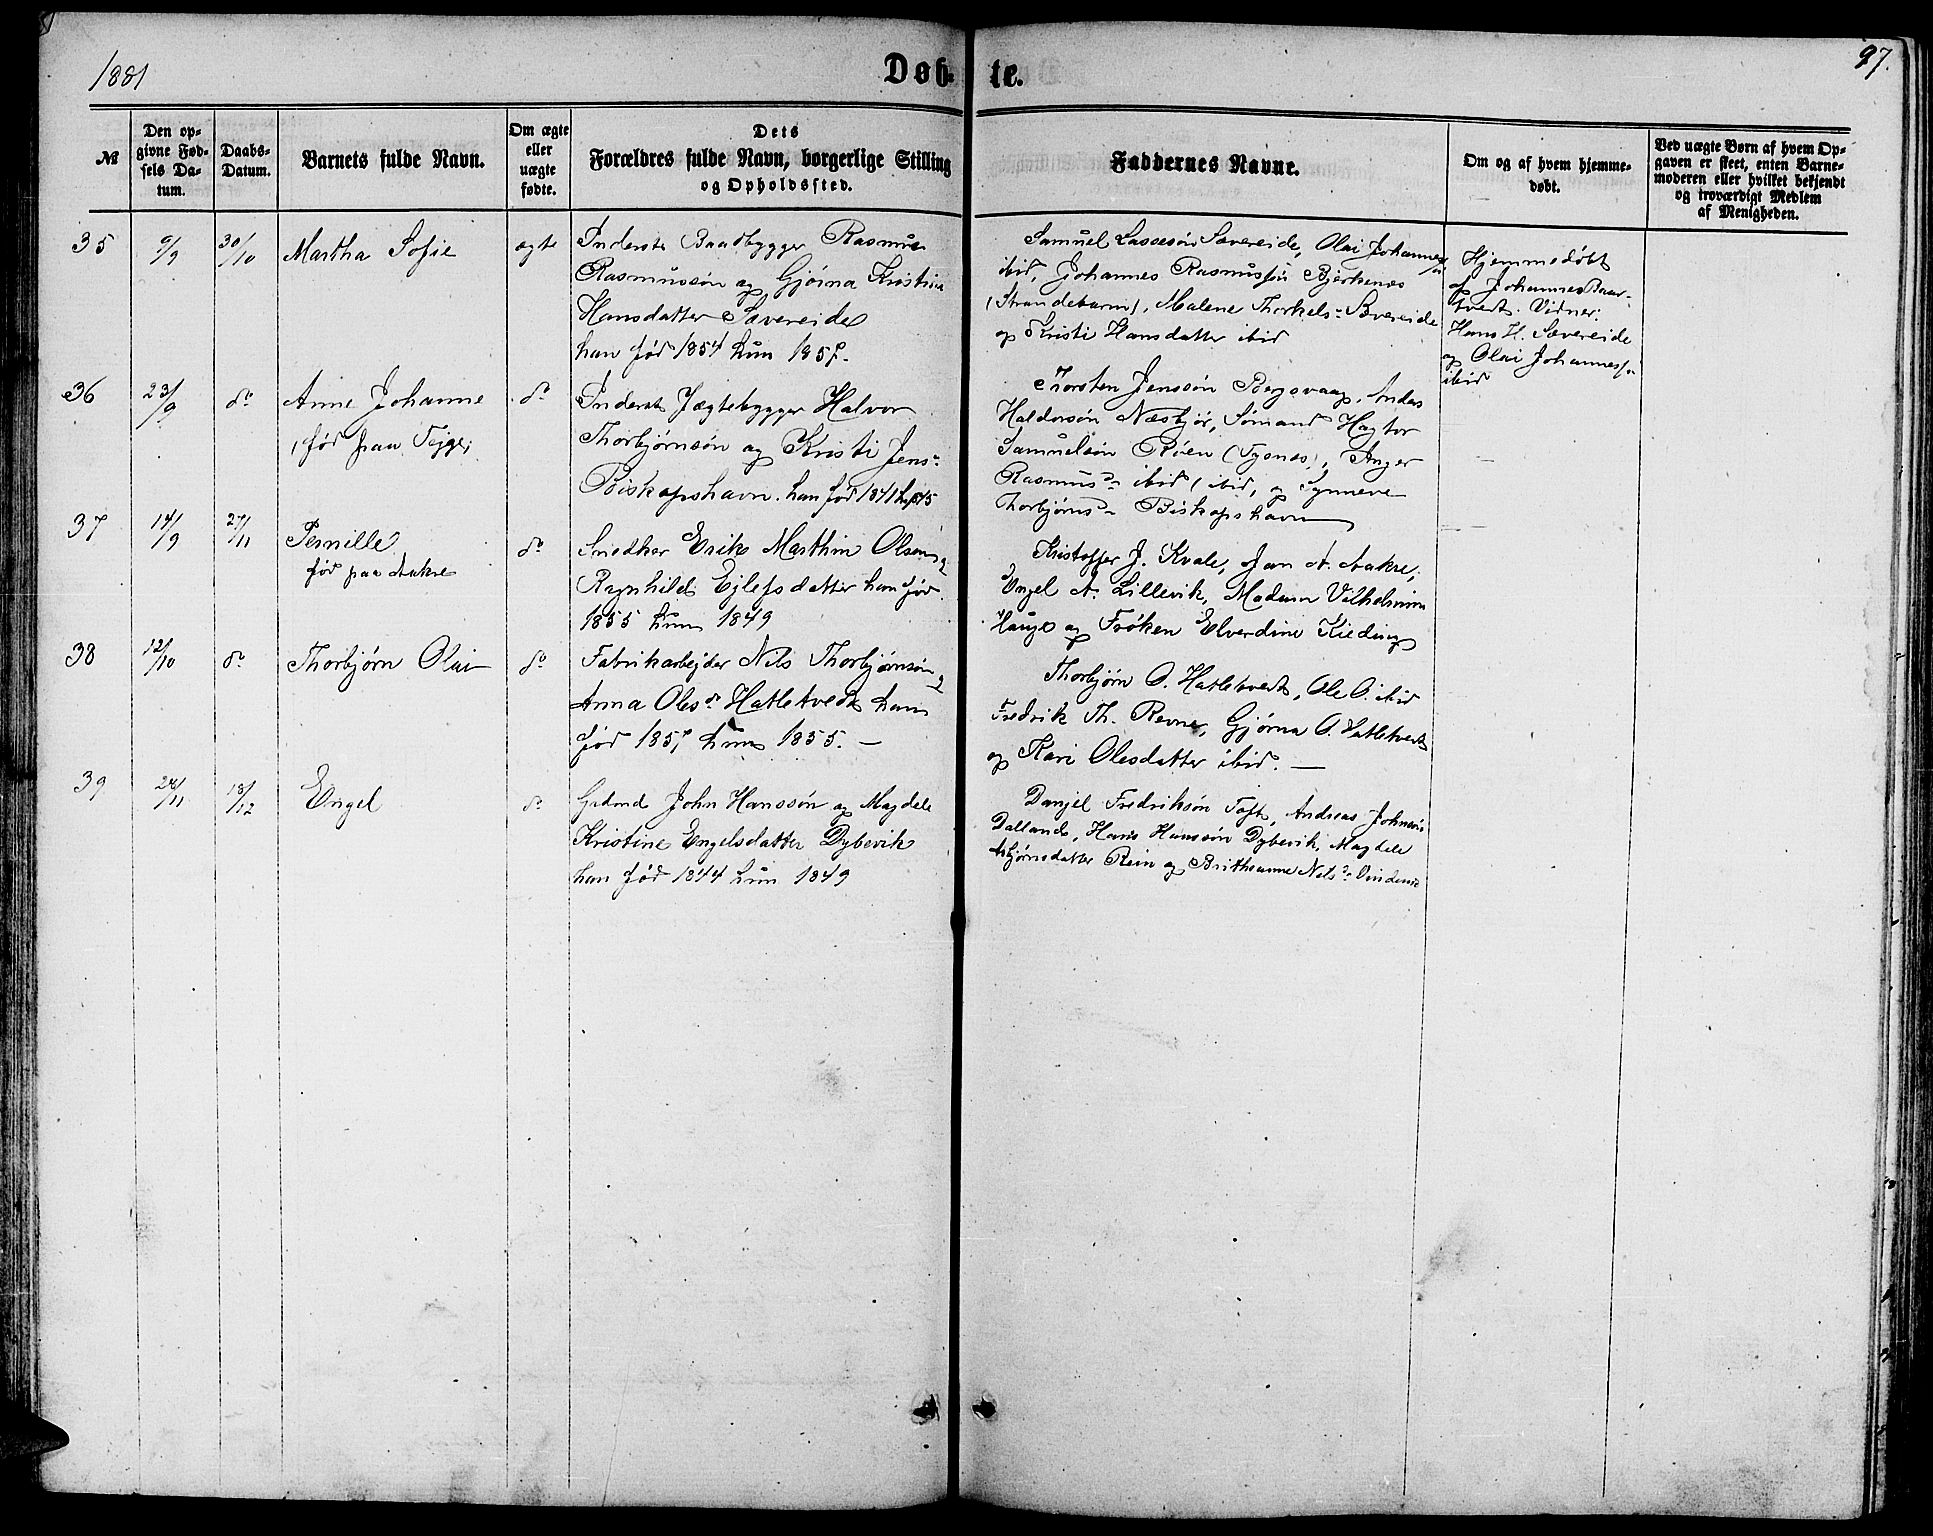 1881
Døb-
te.
97.
№
Den op-
givne Fød-
sels Da-
tum.
Daabs-
Datum.
Barnets fulde Navn.
Om ægte
eller
uægte
fødte.
Dets
Forældres fulde Navn, borgerlige Stilling
og Opholdssted.
Faddernes Navne.
Om og af hvem hjemme-
døbt.
Ved uægte Børn af hvem Op-
gaven er skeet, enten Barne-
moderen eller hvilket bekjendt
og troværdigt Medlem
af Menigheden.
35
9/9
30/10
Martha Sofie
ægte
Inderste Baadbygger Rasmus
Rasmussøn og Gjørna Kristina
Hansdatter Sævereide
han fød 1854 hun 1857.
Samuel Lassesøn Sævereide, Olai Johannes
ibid, Johannes Rasmussøn Bjerkenes
(Strandebarm), Malene Thorkels- Sævereide
og Kristi Hansdatter ibid
Hjemmedøbt
af Johannes Baar-
tvedt. Vidner:
Hans H. Sævereide
og Olai Johanness:
ibid
36
23/9
do
Anne Johanne
(fød paa Teige)
do
Inderste Jægtebygger Halvor
Thorbjørnsøn og Kristi Jens-
Biskopshavn. han fød 1841
Torsten Jenssøn Bergsvaag, Anders
Haldorsøn Næsbjør, Sømand Hagtor
Samuelsøn Røen (Tysnes), Inger
Rasmusd- ibid (ibid, og Synneve
Thorbjørnsd- Biskopshavn
37
14/9
27/11
Pernille
fød paa Aakre
do
Snedker Erik Marthin Olsen og
Ragnhild Ejlefsdatter han fød
1855 hun 1849
Kristoffer J. Kvale, Jan A. Aakre,
Engel A. Lillevik, Madam Vilhelmine
Hauge og Frøken Elverdine Kieding
38
12/10
do
Thorbjørn Olai
do
Fabrikarbejder Nils Thorbjørnsøn og
Anna Olesd. Hatletvedt han
fød 1857 hun 1855. —
Thorbjørn O. Hatletvedt, Ole O. ibid
Fredrik Th. Revne, Gjørna O. Hatletvedt
og Kari Olesdatter ibid. —
39
24/11
18/12
Engel
do
Grdmd John Hanssøn og Magdele
Kristine Engelsdatter Dybevik
han fød 1844 hun 1849
Danjel Fredriksøn Toft, Andreas Johnsøn
Dalland, Hans Hanssøn Dybevik, Magdele
Asbjørnsdatter Rein og Brithanne Nilsd-